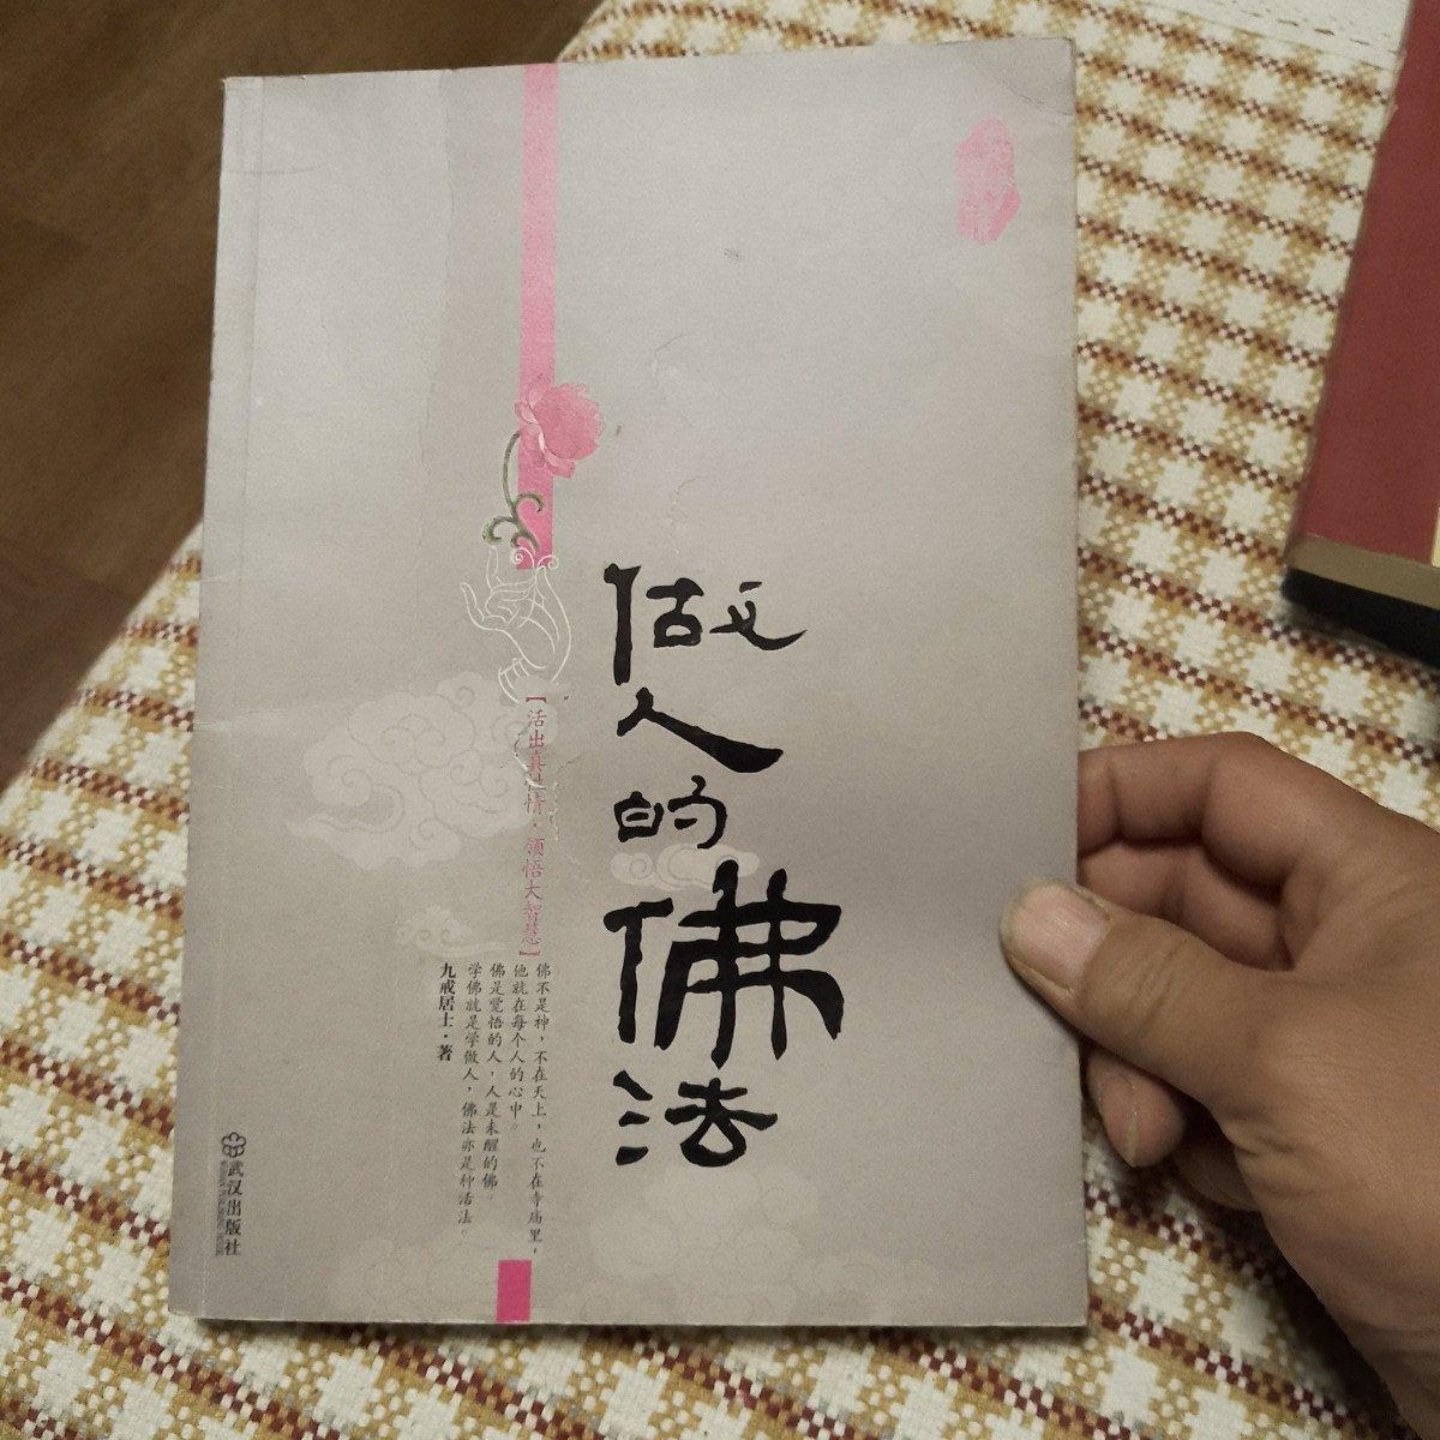 做人的佛法
【活出真性情·领悟大智慧】
佛不是神，不在天上，也不在寺庙里，
他就在每个人的心中。
佛是觉悟的人，人是未醒的佛。
学佛就是学做人，佛法亦是种活法。
九戒居士·著
武汉出版社